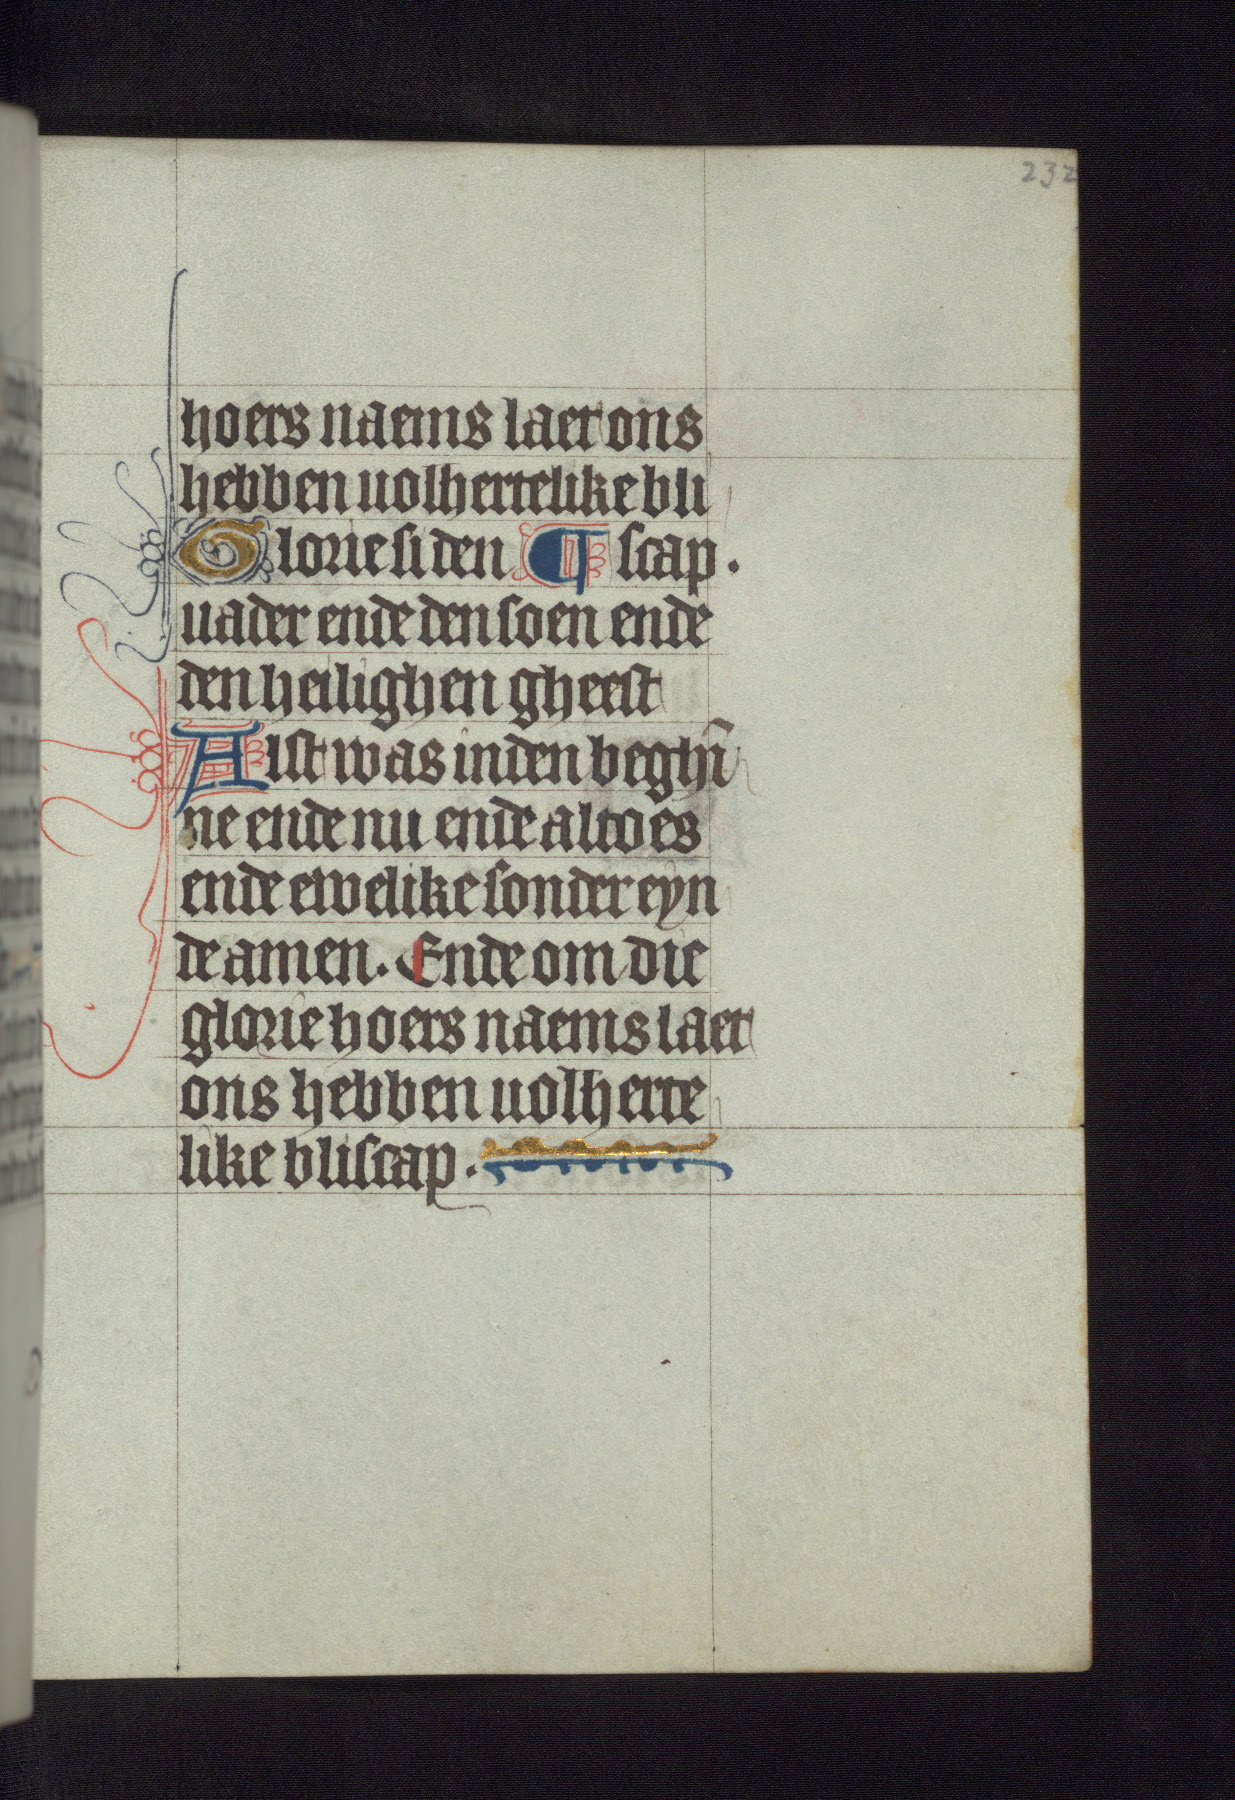 232
hoers naems laet ons
hebben uolhertelike bli
Glorie si den ¶ scap.
uader ende den soen ende
den heilighen gheest
Alst was in den beghī
ne ende nu ende altoes
ende ewelike sonder eyn
de amen. Ende om die
glorie hoers naems laet
ons hebben uolherte
like bliscap.